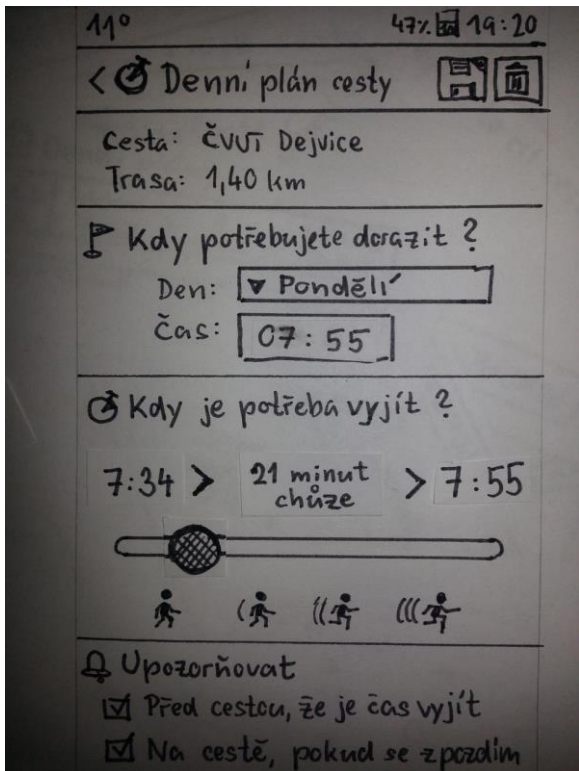 11° 47% 19:20
< Denní plán cesty
Cesta: ČVUT Dejvice
Trasa: 1,40 km
Kdy potřebujete dorazit ?
Den: ▼ Pondělí
Čas: 07:55
Kdy je potřeba vyjít ?
7:34 > 21 minut chůze > 7:55
Upozorňovat
Před cestou, že je čas vyjít
Na cestě, pokud se zpozdím